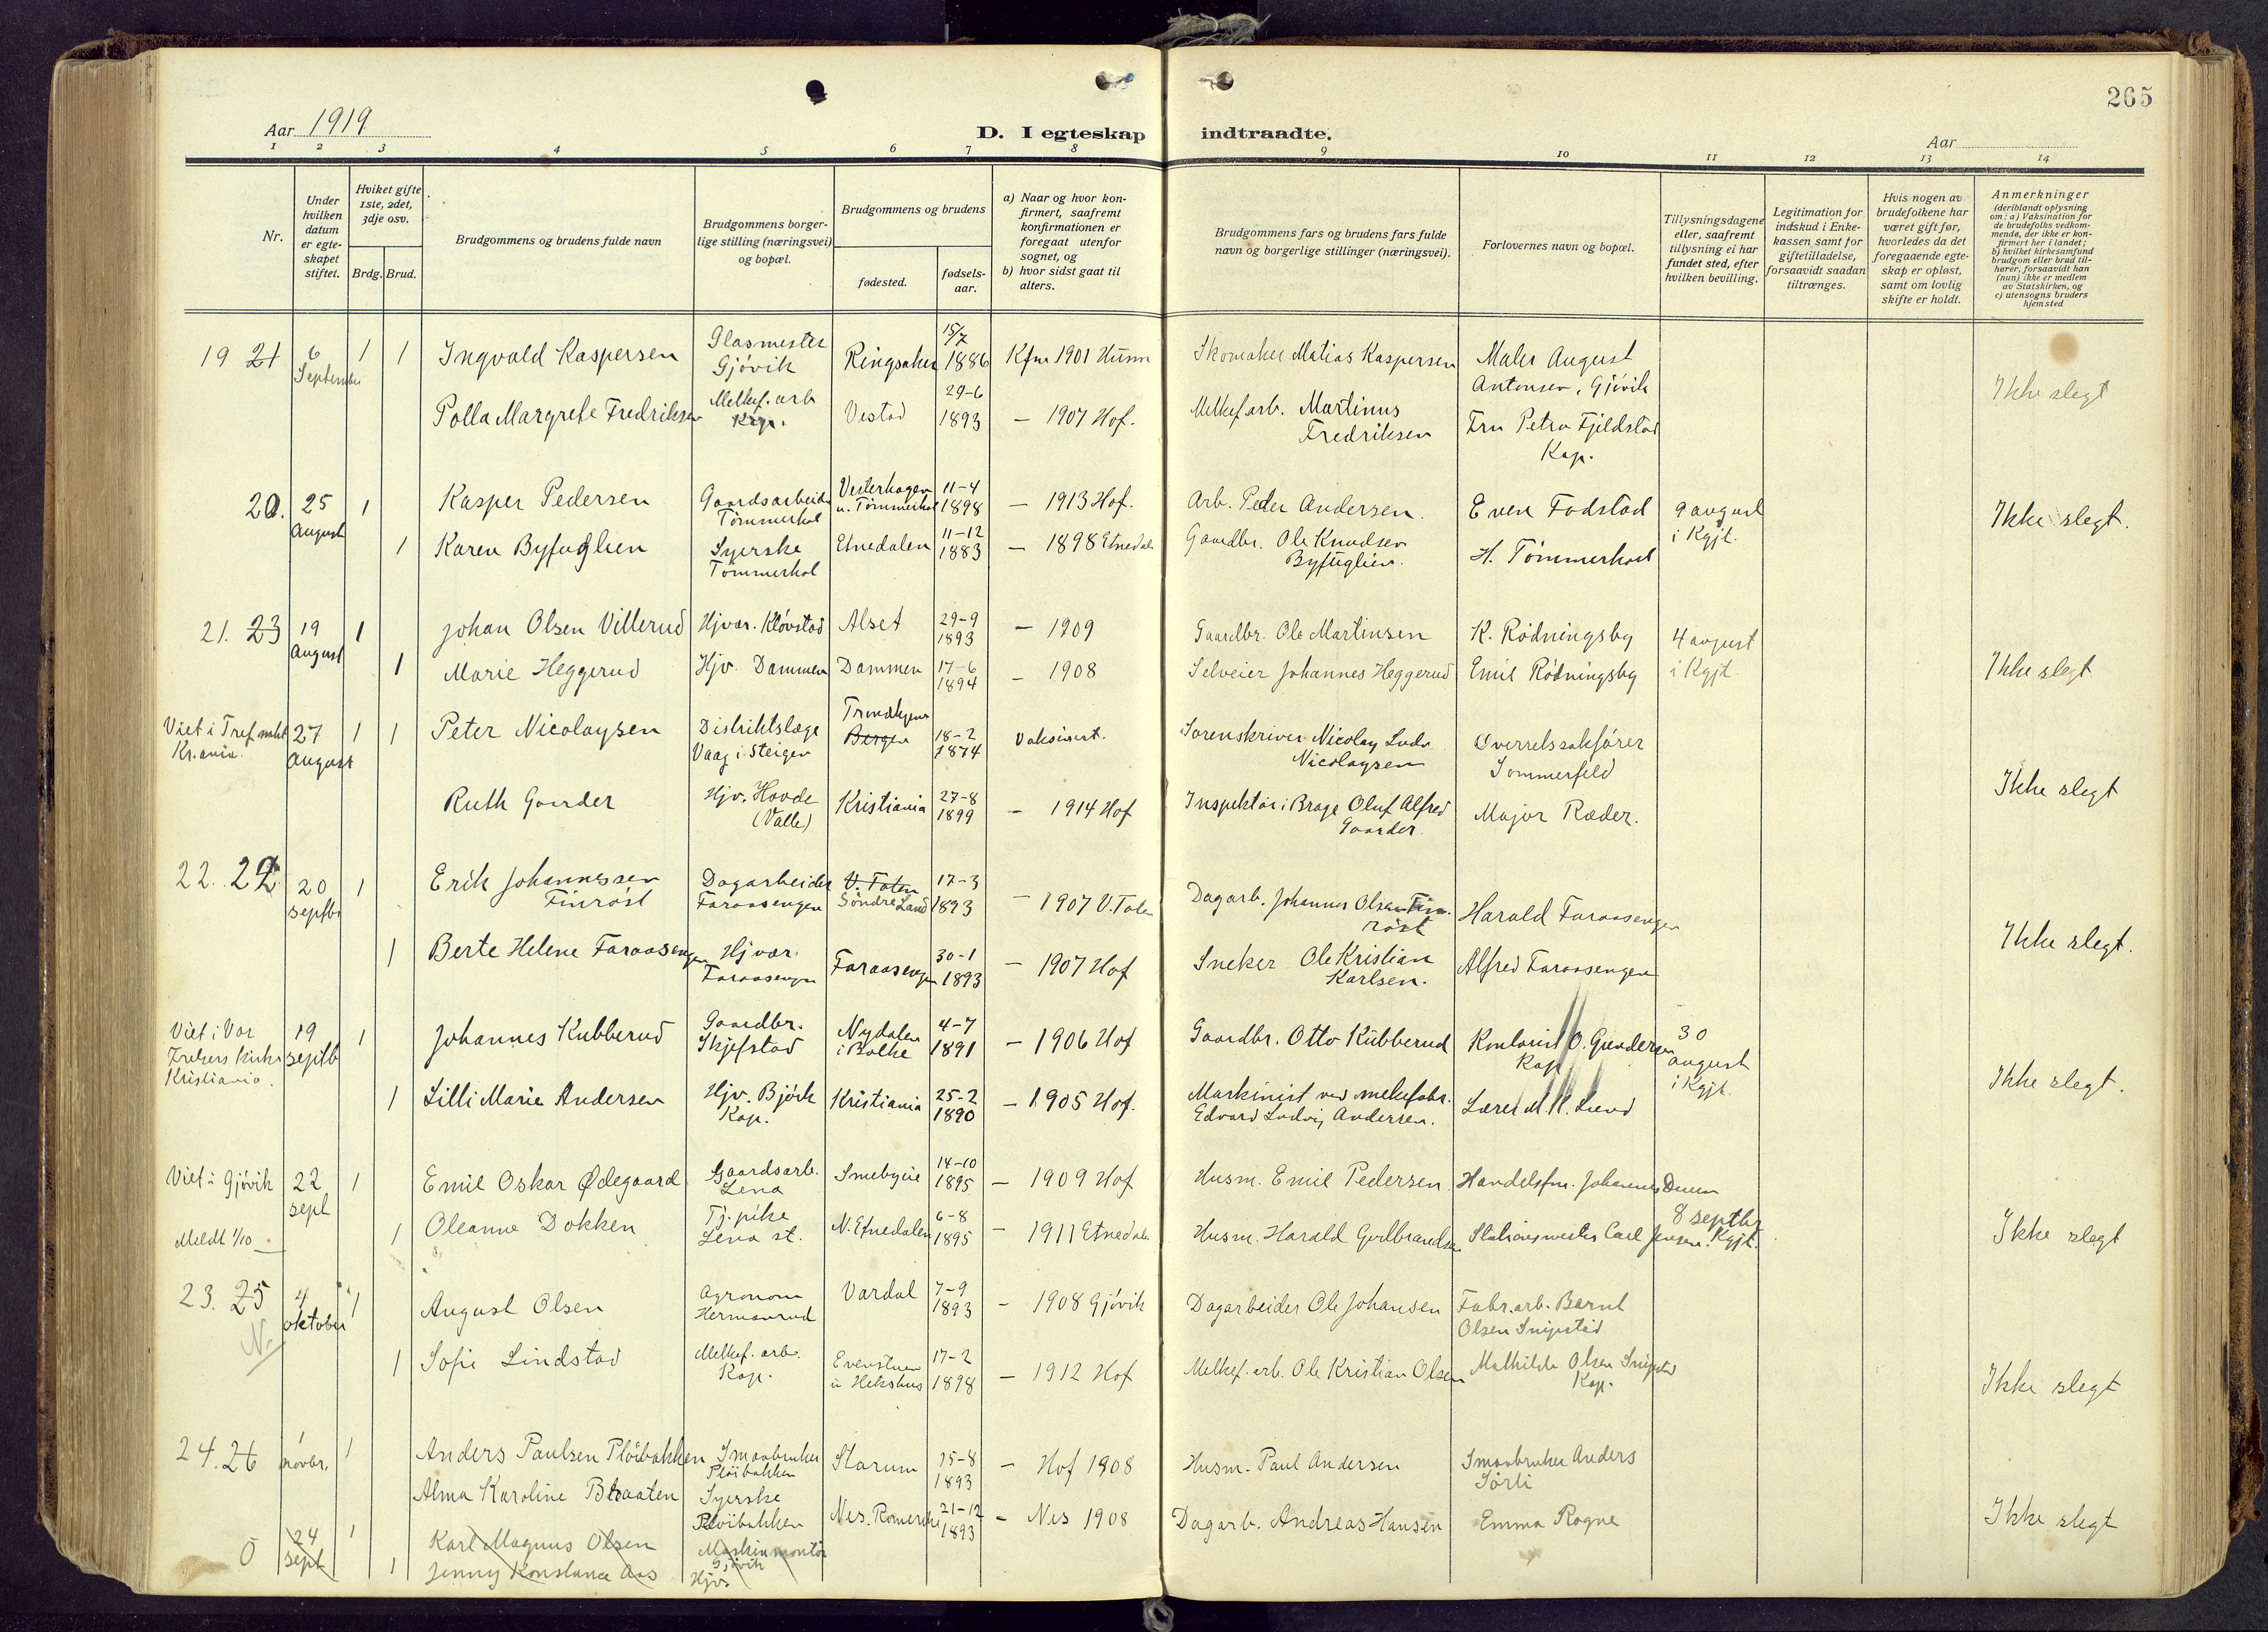 265
Aar 1919
D. I egteskap indtraadte.
Aar
1 2 3 4 5 6 7 8 9 10 11 12 13 14
Nr.
Under hvilken datum er egte-skapet stiftet.
Hvilket gifte 1ste, 2det, 3dje osv.
Brdg. Brud.
Brudgommens og brudens fulde navn
Brudgommens borger-lige stilling (næringsvei) og bopæl.
Brudgommens og brudens
fødested.
fødsels-aar.
a) Naar og hvor kon-firmert, saafremt konfirmationen er foregaat utenfor sognet, og
b) hvor sidst gaat til alters.
Brudgommens fars og brudens fars fulde navn og borgerlige stillinger (næringsvei).
Forlovernes navn og bopæl.
Tillysningsdagene eller, saafremt tillysning ei har fundet sted, efter hvilken bevilling.
Legitimation for indskud i Enke-kassen samt for giftetilladelse, forsaavidt saadan tiltrænges.
Hvis nogen av brudefolkene har været gift før, hvorledes da det foregaaende egte-skap er opløst, samt om lovlig skifte er holdt.
Anmerkninger
(deriblandt oplysning om: a) Vaksination for de brudefolks vedkom-mende, der ikke er kon-firmert her i landet; b) hvilket kirkesamfund brudgom eller brud til-hører, forsaavidt han (hun) ikke er medlem av Statskirken, og c) utensogns bruders hjemsted
19 21 6 September 1 1 Ingvald Kaspersen Glasmester Gjövik Ringsaker 15/7 1886 Kfm 1901 Hunn Skomaker Matias Kaspersen Maler August Antonsen, Gjövik
Polla Margrete Fredriksen Melkef. arb Kap. Vestad 29-6 1893 — 1907 Hof. Melkef. arb. Martinus Fredriksen Fru Petra Fjeldstad Kap. Ikke slegt
20. 25 August 1 Kasper Pedersen Gaardsarbeider Tömmerhol Vesterhagen u. Tömmerhol 11-4 1898 — 1913 Hof. Arb. Peder Andersen. Even Fodstad 9 august i Kgjt.
1 Karen Byfuglien Syerske Tömmerhol Etnedalen 11-12 1883 — 1898 Etnedal Gaardbr. Ole Knudsen Byfuglien. H. Tömmerhol Ikke slegt.
21. 23 19 August 1 Johan Olsen Villerud Hjvær. Klövstad Alset 29-9 1893 — 1909 Gaardbr. Ole Martinsen K. Rödningsby 4 august i Kgjt.
1 Marie Heggerud Hjv. Dammen Dammen 17-6 1894 — 1908 Selveier Johannes Heggerud Emil Rödningsby Ikke slegt
Viet i Kr.ania. 27 August 1 1 Peter Nicolaysen Distriktslæge Vaag i Steigen Bergen Trondhjem 18-2 1874 Vaksinert. Sorenskriver Nicolay Ludv Nicolaysen Overretssakförer Sommerfeld
Ruth Gaarder Hjv. Hovde (Valle) Kristiania 27-8 1899 — 1914 Hof Inspektör i Brage Oluf Alfred Gaarder. Major Ræder. Ikke slegt
22. 20 septbr 1 Erik Johannessen Finröst Dagarbeider Faraasengen V. Toten Söndre Land 17-3 1893 — 1907 V. Toten Dagarb. Johannes Olsen Finröst Harald Faraasengen
1 Berte Helene Faraasengen Hjvær. Faraasengen Faraasengen 30-1 1893 — 1907 Hof Sneker Ole Kristian Karlsen. Alfred Faraasengen Ikke slegt.
Viet i Vor Frelsers kirke Kristiania. 19 septb 1 Johannes Kubberud Gaardbr. Skjefstad Nydalen i Balke 4-7 1891 — 1906 Hof Gaardbr. Otto Kubberud Kontorist O. Gundersen Kap 30 august i Kgjt.
1 Lilli Marie Andersen Hjv. Björk Kap. Kristiania 25-2 1890 — 1905 Hof. Maskinist ved melkefabr. Edvard Ludvig Andersen. Lærer M. H. Lund Ikke slegt.
Viet i Gjövik 22 sept 1 Emil Oskar Ødegaard Gaardsarb. Lena Smebyeie 14-10 1895 — 1909 Hof Husm. Emil Pedersen. Handelsfm. Johannes Duen
Meldt 1/10 1 Oleanne Dokken Tj. pike Lena st. N. Etnedalen 6-8 1895 — 1911 Etnedal Husm. Harald Gulbrandsen Stationsmester Carl Jensen. 8 septbr Kgjt. Ikke slegt
23. 25 4 oktober 1 August Olsen Agronom Hermanrud Vardal 7-9 1893 — 1908 Gjövik Dagarbeider Ole Johansen Fabr. arb. Bernt Olsen Snipstad
1 Sofie Lindstad Melkef. arb. Kap. Evenstuen u Hekshus 17-2 1898 — 1912 Hof Melkef. arb. Ole Kristian Olsen Mathilde Olsen Snipstad Kap. Ikke slegt
24. 26 1 novbr. 1 Anders Paulsen Plöibakken Smaabruker Plöibakken Starum 15-8 1893 — Hof 1908 Husm. Paul Andersen Smaabruker Anders Sörli
Alma Karoline Braaten Syerske Plöibakken Nes. Romerike 21-12 1893 — Nes 1908 Dagarb. Andreas Hansen Emma Rogne Ikke slegt
0 24 sept 1 Karl Magnus Olsen Maskinmontör Gjövik
1 Jenny Konstance Aas Hjv.